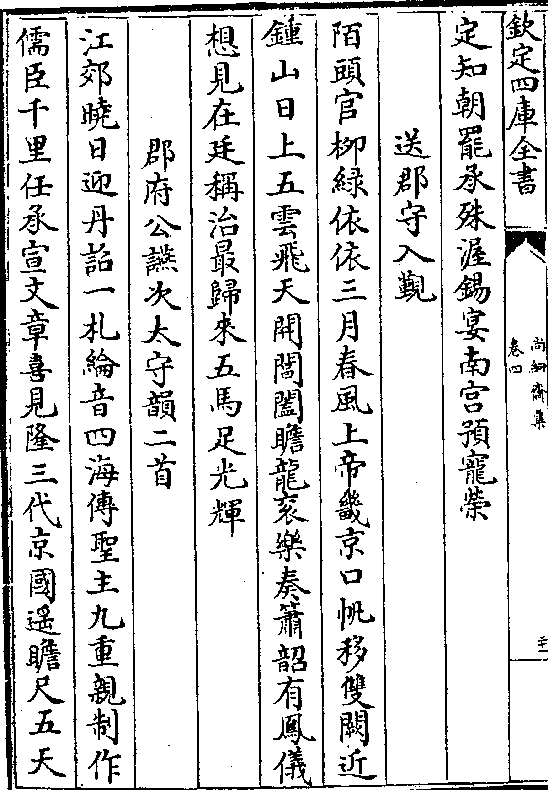 欽定四庫全書
尚絅齋集
卷四
定知朝罷承殊渥錫宴南宫預寵榮
送郡守入覲
陌頭官栁緑依依三月春風上帝畿京口帆移雙闕近
鍾山日上五雲飛天開閶闔瞻龍衮樂奏簫韶有鳳儀
想見在廷稱治最歸來五馬足光輝
郡府公讌次太守韻二首
江郊曉日迎丹詔一札綸音四海傳聖主九重親制作
儒臣千里任承宣文章喜見隆三代京國遥瞻尺五天